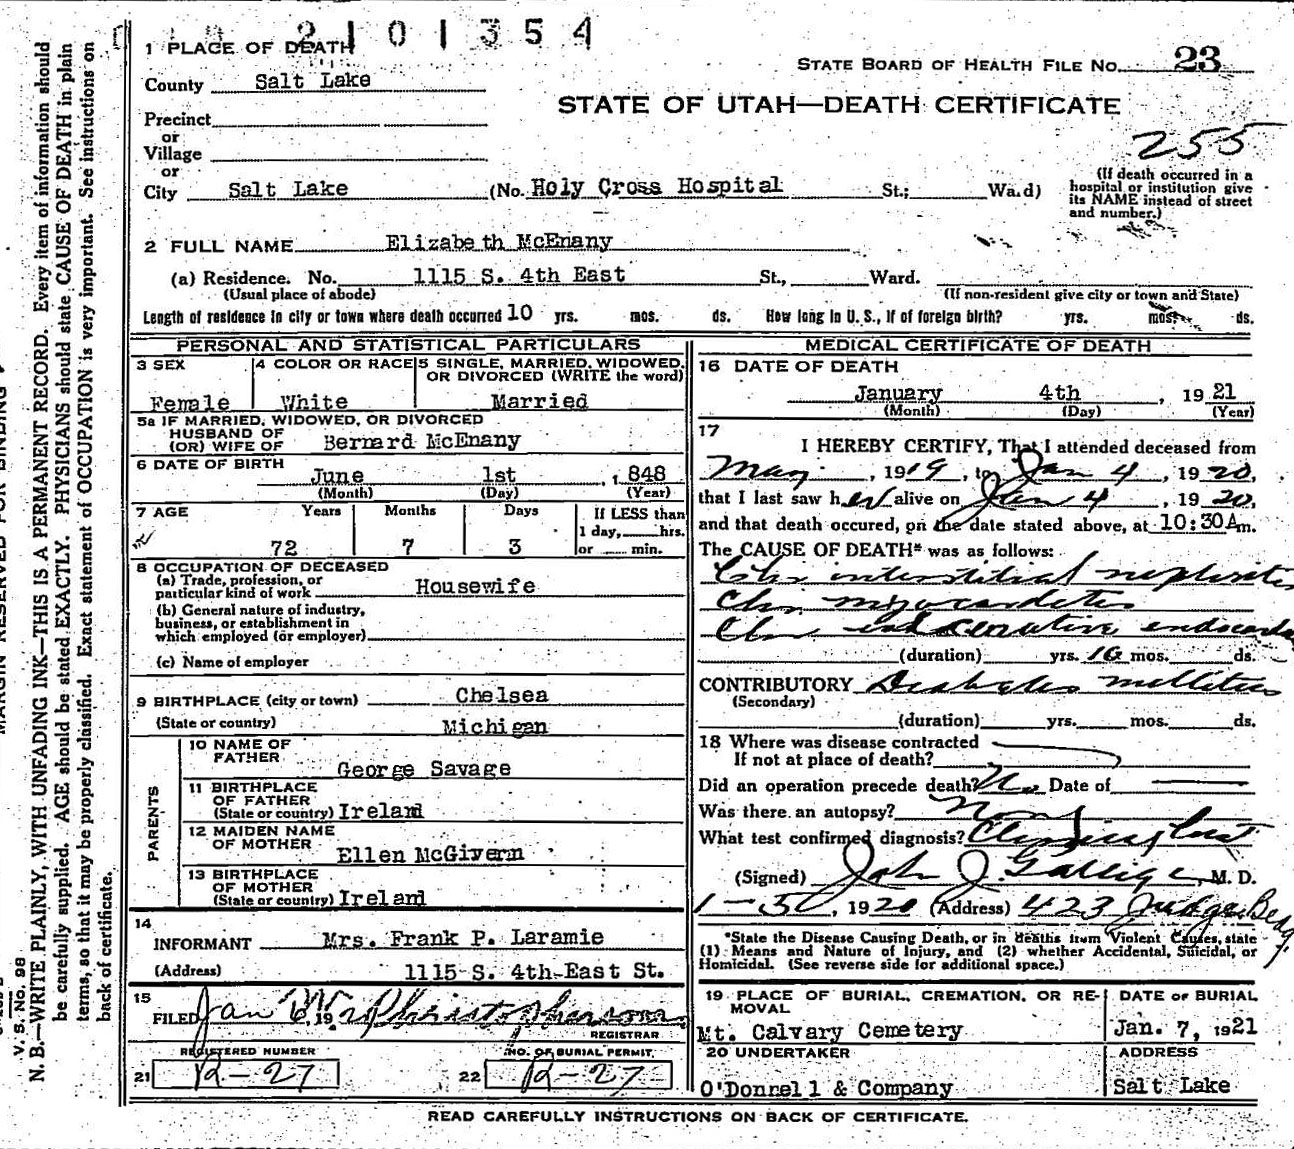 2101354
1 PLACE OF DEATH
STATE BOARD OF HEALTH FILE No. 23
County Salt Lake
STATE OF UTAH—DEATH CERTIFICATE
Precinct
or
Village
or
255
City Salt Lake (No. Holy Cross Hospital St.; Ward)
(If death occurred in a
hospital or institution give
its NAME instead of street
and number.)
2 FULL NAME Elizabeth McEnany
(a) Residence. No. 1115 S. 4th East St., Ward.
(Usual place of abode) (If non-resident give city or town and State)
Length of residence in city or town where death occurred 10 yrs. mos. ds. How long in U. S., if of foreign birth? yrs. mos. ds.
PERSONAL AND STATISTICAL PARTICULARS
3 SEX 4 COLOR OR RACE 5 SINGLE, MARRIED, WIDOWED,
OR DIVORCED (WRITE the word)
Female White Married
5a IF MARRIED, WIDOWED, OR DIVORCED
HUSBAND OF
(OR) WIFE OF Bernard McEnany
6 DATE OF BIRTH
June 1st , 1848
(Month) (Day) (Year)
7 AGE Years Months Days If LESS than
1 day, hrs.
72 7 3 or min.
8 OCCUPATION OF DECEASED
(a) Trade, profession, or
particular kind of work Housewife
(b) General nature of industry,
business, or establishment in
which employed (or employer)
(c) Name of employer
9 BIRTHPLACE (city or town) Chelsea
(State or country) Michigan
PARENTS
10 NAME OF
FATHER
George Savage
11 BIRTHPLACE
OF FATHER
(State or country) Ireland
12 MAIDEN NAME
OF MOTHER
Ellen McGivern
13 BIRTHPLACE
OF MOTHER
(State or country) Ireland
14
INFORMANT Mrs. Frank P. Laramie
(Address) 1115 S. 4th East St.
15
FILED Jan 19
REGISTRAR
REGISTERED NUMBER NO. OF BURIAL PERMIT
21 R-27 22 R-27
MEDICAL CERTIFICATE OF DEATH
16 DATE OF DEATH
January 4th , 19 21
(Month) (Day) (Year)
17
I HEREBY CERTIFY, That I attended deceased from
May , 1919, to Jan 4 , 1920,
that I last saw her alive on Jan 4 , 19 20,
and that death occured, on the date stated above, at 10:30 A m.
The CAUSE OF DEATH* was as follows:
Chr interstitial nephritis
Chr. myocarditis
Chr endocard
(duration) yrs. 10 mos. ds.
CONTRIBUTORY Diabetes mellitus
(Secondary)
(duration) yrs. mos. ds.
18 Where was disease contracted
If not at place of death?
Did an operation precede death? No Date of
Was there an autopsy?
What test confirmed diagnosis?
(Signed) John J. , M. D.
, 1920 (Address) 423 Judge Bldg.
*State the Disease Causing Death, or in deaths from Violent Causes, state
(1) Means and Nature of Injury, and (2) whether Accidental, Suicidal, or
Homicidal. (See reverse side for additional space.)
19 PLACE OF BURIAL, CREMATION, OR RE-
MOVAL
DATE OF BURIAL
Mt. Calvary Cemetery Jan. 7, 1921
20 UNDERTAKER ADDRESS
O'Donnell & Company Salt Lake
READ CAREFULLY INSTRUCTIONS ON BACK OF CERTIFICATE.
MARGIN RESERVED FOR BINDING
V. S. No. 98
N. B.—WRITE PLAINLY, WITH UNFADING INK—THIS IS A PERMANENT RECORD. Every item of information should
be carefully supplied. AGE should be stated EXACTLY. PHYSICIANS should state CAUSE OF DEATH in plain
terms, so that it may be properly classified. Exact statement of OCCUPATION is very important. See instructions on
back of certificate.